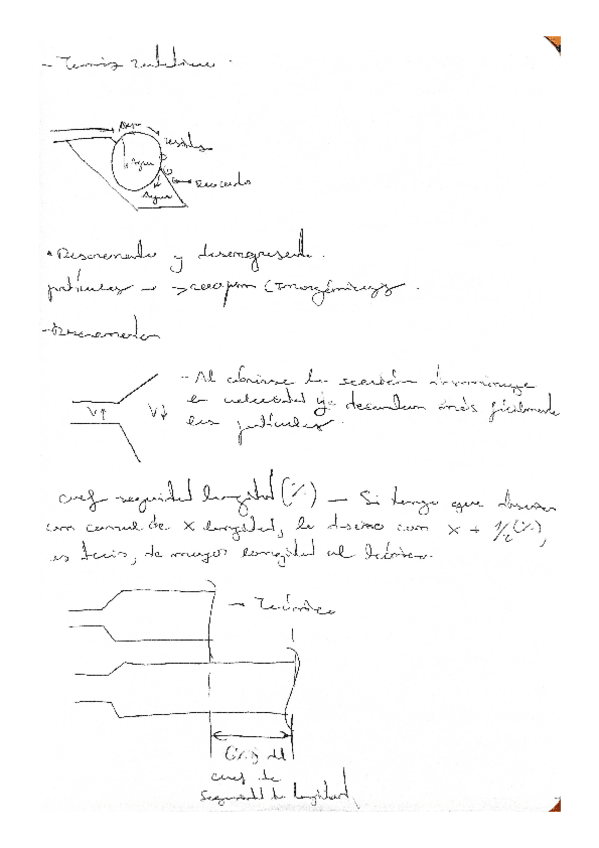 - Tamiz rotativo.
Agua
residuos
Agua
Agua
• Desarenador y desengrasado.
partículas → (Inorgánicas)
- Desarenador
- Al abrirse la sección disminuye
V↑
V↓
la velocidad y decantan más fácilmente
las partículas.
coef seguridad longitud (%) — Si tengo que diseñar
un canal de x longitud, lo diseño con x + (%),
es decir, de mayor longitud al teórico.
→ Teórico
(%) del
coef. de
seguridad de longitud